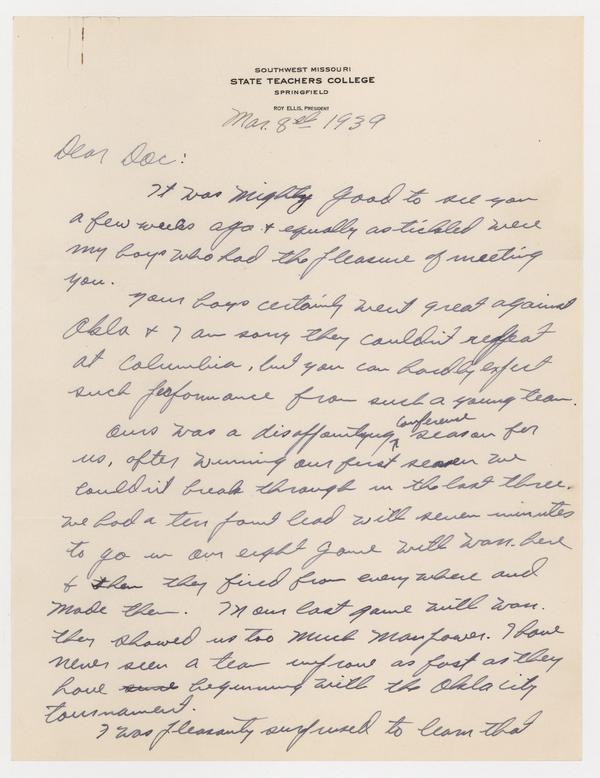 SOUTHWEST MISSOURI
STATE TEACHERS COLLEGE
SPRINGFIELD
ROY ELLIS, PRESIDENT
Mar. 8th 1939
Dear Doc:
It was mighty good to see you
a few weeks ago & equally as tickled were
my boys who had the pleasure of meeting
you.
Your boys certainly went great against
Okla & I am sorry they couldn't repeat
at Columbia, but you can hardly expect
such performance from such a young team.
Ours was a disappointing conference season for
us, after winning our first seven we
couldn't break through in the last three.
We had a ten point lead with seven minutes
to go in our eight game with Warr. here
& then they fired from everywhere and
made them. In our last game with Warr.
they showed us too much manpower. I have
never seen a team improve as fast as they
have since beginning with the Okla City
tournament.
I was pleasantly surprised to learn that